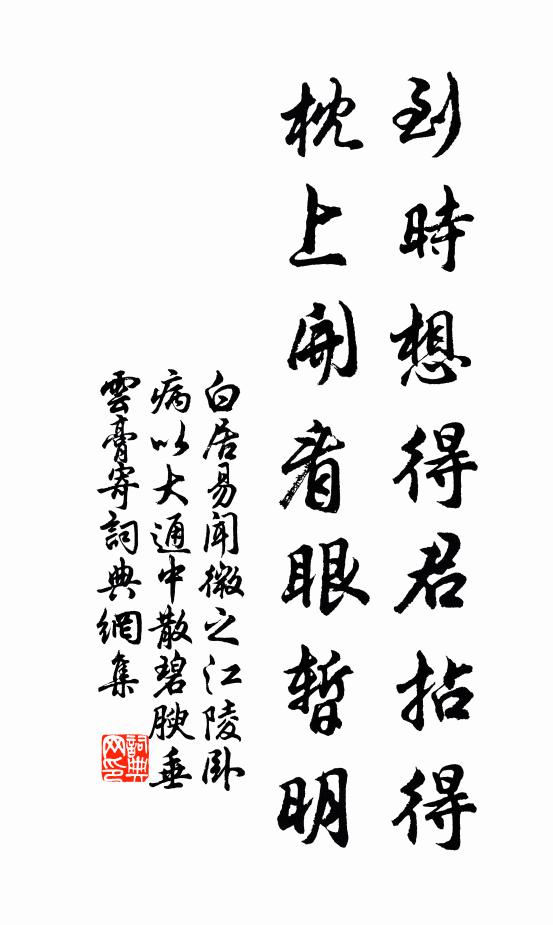 到時想得君拈得
枕上開看眼暫明
白居易聞微之江陵卧
病以大通中散碧腴垂
雲膏寄詞典網集
詞典網印